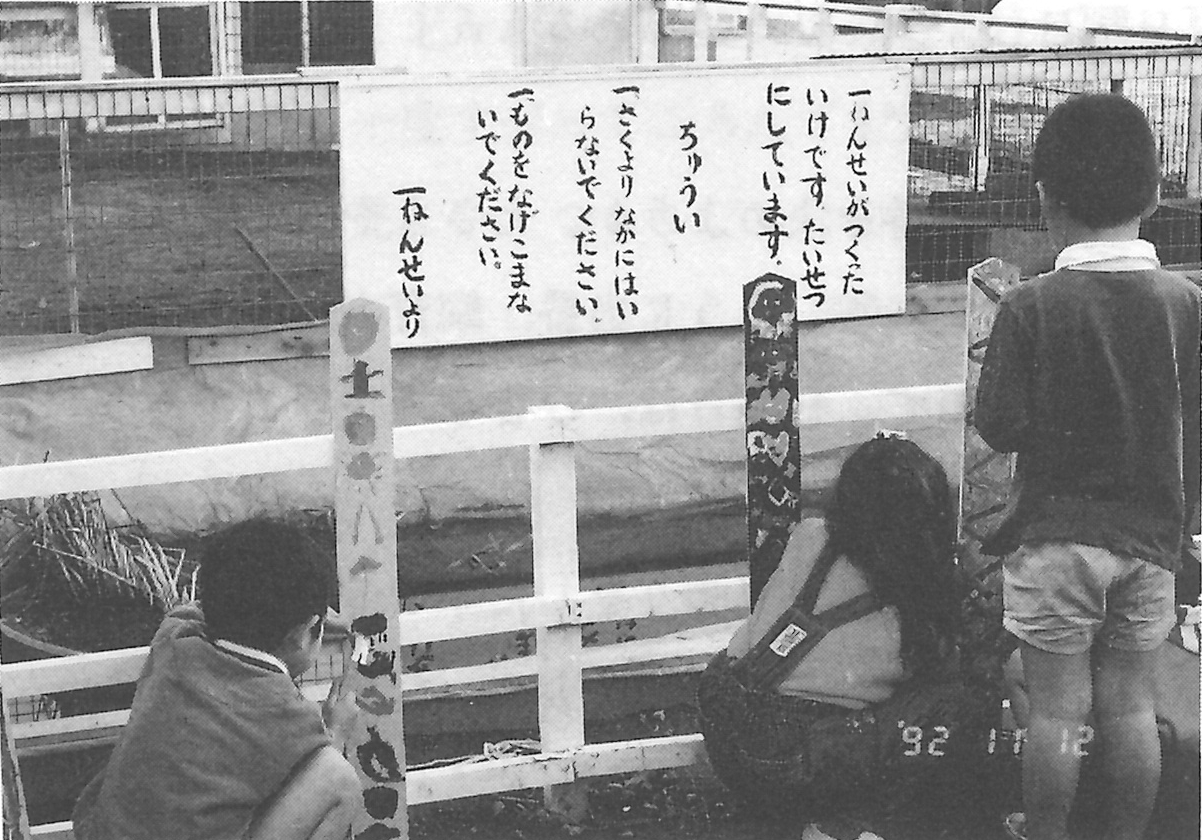 一ねんせいがつくった
いけです。たいせつ
にしています。
ちゅうい
一さくより なかにはい
らないでください。
一ものをなげこまな
いでください。
一ねんせいより
土
'92 11 12